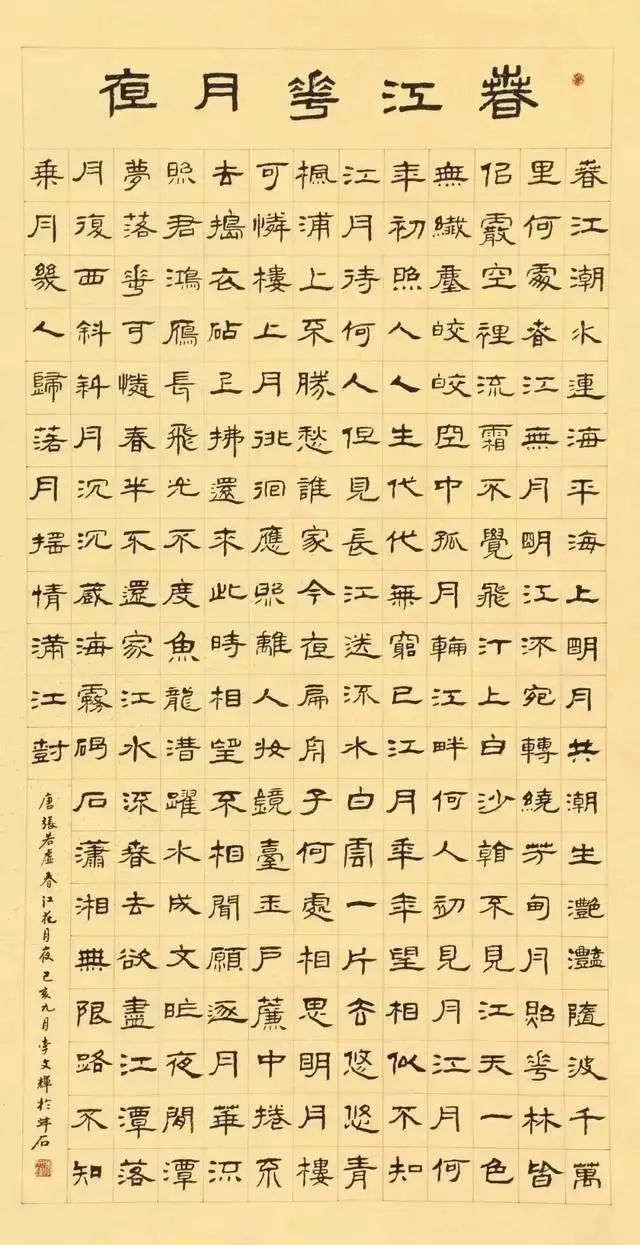 春江花月夜
春江潮水連海平海上明月共潮生灩灩隨波千萬
里何處春江無月明江流宛轉繞芳甸月照花林皆
佀霰空裡流霜不覺飛汀上白沙看不見江天一色
無纖塵皎皎空中孤月輪江畔何人初見月江月何
年初照人人生代代無窮已江月年年望相似不知
江月待何人但見長江送流水白雲一片去悠悠青
楓浦上不勝愁誰家今夜扁舟子何處相思明月樓
可憐樓上月徘徊應照離人妝鏡臺玉戶簾中捲不
去搗衣砧上拂還來此時相望不相聞願逐月華流
照君鴻雁長飛光不度魚龍潛躍水成文昨夜閒潭
夢落花可憐春半不還家江水流春去欲盡江潭落
月復西斜斜月沉沉藏海霧碣石瀟湘無限路不知
乘月幾人歸落月搖情滿江樹
唐張若虛春江花月夜己亥九月李文輝於石